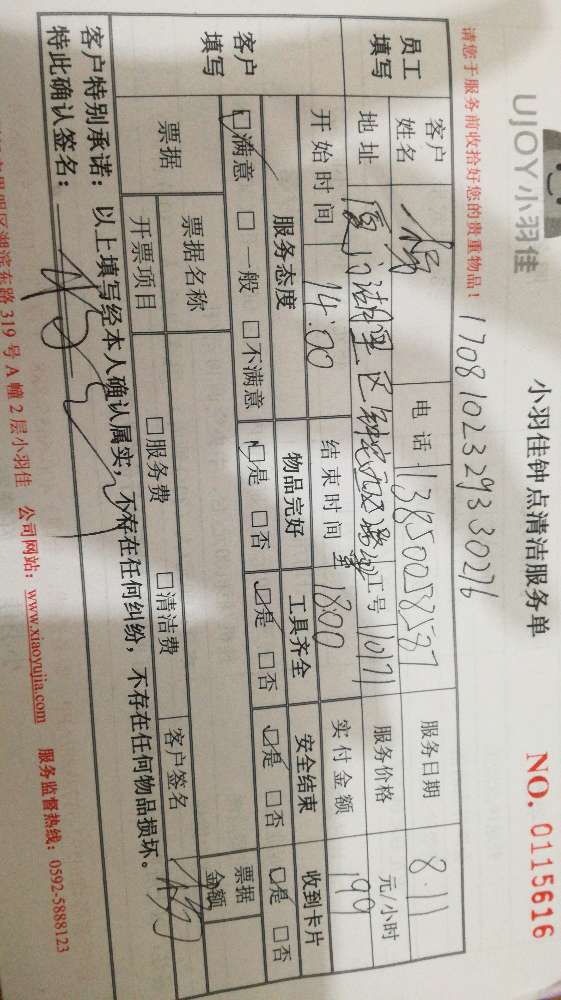 UJOY小羽佳
小羽佳钟点清洁服务单
NO. 0115616
请您于服务前收拾好您的贵重物品!
1708102329330276
员工填写
客户姓名 杨 电话 13850038587 服务日期 8.11
地址 厦门湖里区 工号 10171 服务价格 元/小时
开始时间 14:00 结束时间 1800 实付金额 190
客户填写
服务态度 物品完好 工具齐全 安全结束 收到卡片
☑满意 □一般 □不满意 ☑是 □否 ☑是 □否 ☑是 □否 ☑是 □否
票据 票据名称 票据金额
开票项目 □服务费 □清洁费 客户签名 杨
客户特别承诺:以上填写经本人确认属实,不存在任何纠纷,不存在任何物品损坏。
特此确认签名:
明区湖滨东路 319 号 A 幢 2 层小羽佳 公司网站:www.xiaoyujia.com 服务监督热线:0592-5888123